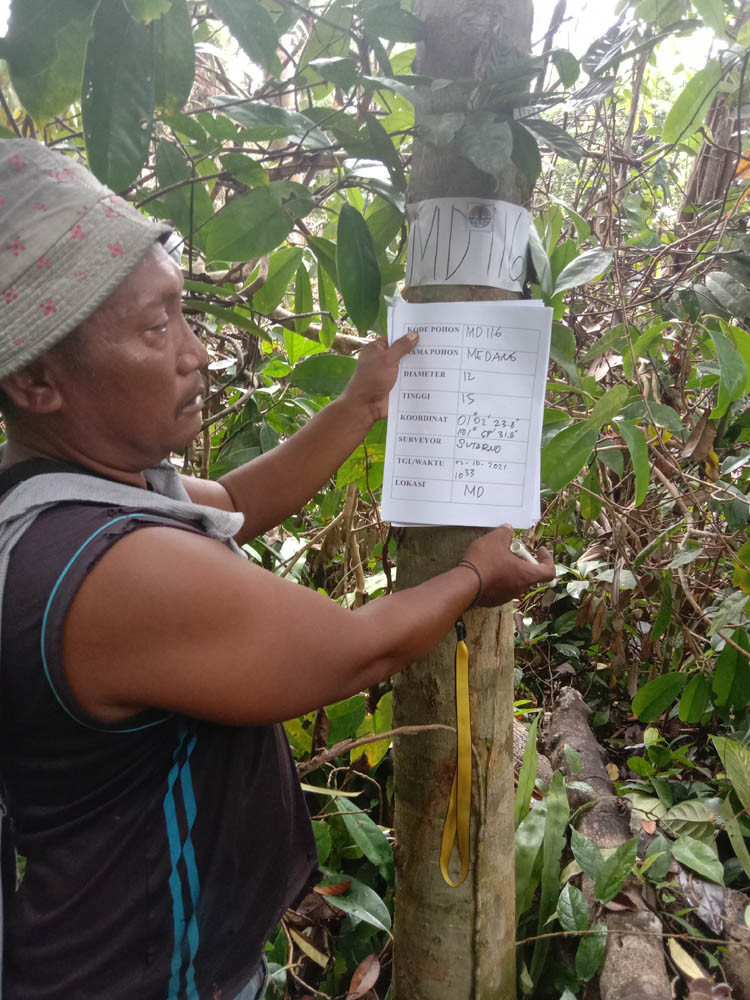 MD 116
KODE POHON MD 116
NAMA POHON MEDANG
DIAMETER 12
TINGGI 15
KOORDINAT 01° 02' 23.8"
101° 58' 31.8"
SURVEYOR SUTARNO
TGL/WAKTU 02-10-2021
1033
LOKASI MD